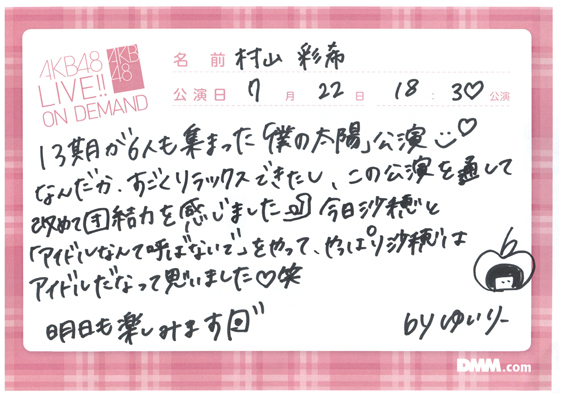 AKB48
LIVE!!
ON DEMAND
AKB
48
名 前 村山 彩希
公演日 7 月 22 日 18 : 30 公演
13期が6人も集まった「僕の太陽」公演
なんだか、すごくリラックスできたし、この公演を通して
改めて団結力を感じました 今日沙穂と
「アイドルなんて呼ばないで」をやって、やっぱり沙穂は
アイドルだなって思いました♡笑
明日も楽しみます
by ゆいりー
DMM.com